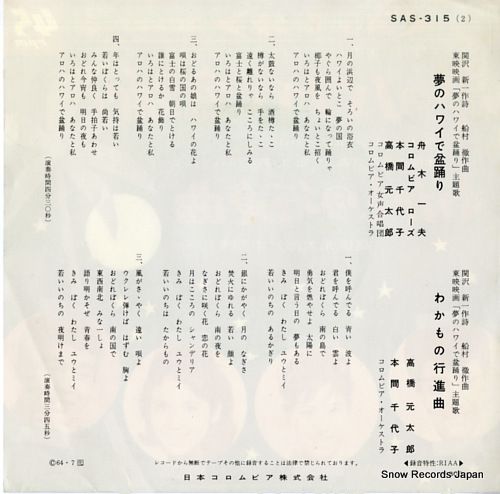 SAS-315(2)
関沢 新一作詩 船村 徹作曲
東映映画「夢のハワイで盆踊り」主題歌
夢のハワイで盆踊り
舟木一夫
コロムビア・ローズ
本間千代子
高橋元太郎
コロムビア女声合唱団
コロムビア・オーケストラ
一、月の浜辺で そろいの浴衣
ハワイよいとこ 夢の国
やぐら囲んで 輪になって踊りゃ
椰子も夜風を ちょいとこ招く
いろはとアロハ あなたと私
アロハのハワイで盆踊り
二、太鼓ないなら 酒樽たたこ
樽がないなら 手をたたこ
遠く離れりゃ こころにしみる
富士と桜と 盆踊り
いろはとアロハ あなたと私
アロハのハワイで盆踊り
三、おどるあの娘は ハワイの花よ
唄は桜の国の唄
富士の白雪 朝日でとける
誰にとけるか 花飾り
いろはとアロハ あなたと私
アロハのハワイで盆踊り
四、年はとっても 気持は若い
若いぼくらは 尚若い
みんな仲良く 手拍子あわせ
おどれ今宵も 明日の夜も
いろはとアロハ あなたと私
アロハのハワイで盆踊り
(演奏時間四分三〇秒)
関沢 新一作詩 船村 徹作曲
東映映画「夢のハワイで盆踊り」主題歌
わかもの行進曲
高橋元太郎
本間千代子
コロムビア・オーケストラ
一、僕を呼んでる 青い 波よ
君を呼んでる 白い 雲よ
おどれぼくら 南の島で
勇気を燃やせよ 太陽に
明日と言う日の 夢もある
きみ ぼく わたし ユウとミイ
若いいのちの あるかぎり
二、銀にかがやく 月の なぎさ
焚火にゆれる 若い 顔よ
おどれぼくら 南の夜を
なぎさに咲く花 恋の花
月はこころの シャンデリア
きみ ぼく わたし ユウとミイ
若いいのちは たからもの
三、風がささやく 遠い 唄よ
ウクレレ弾けば はずむ 胸よ
おどれぼくら 南の国で
東西南北 みなーしょ
語り明かそぜ 青春を
きみ ぼく わたし ユウとミイ
若いいのちの 夜明けまで
(演奏時間三分四五秒)
◀録音特性:RIAA▶
Ⓒ64・7
レコードから無断でテープその他に録音することは法律で禁じられております。
日本コロムビア株式会社
Snow Records Japan